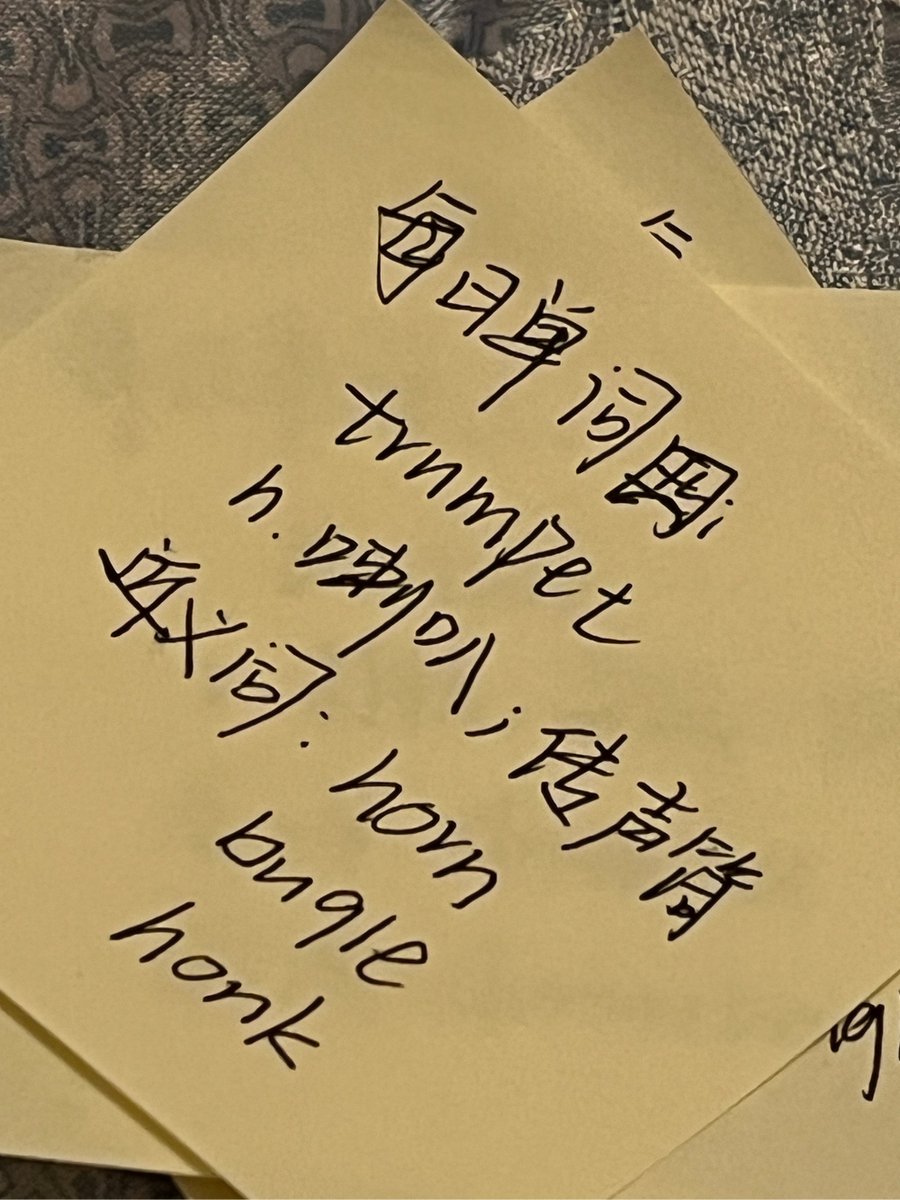 每日单词
trumpet
n. 喇叭; 传声筒
近义词: horn
bugle
honk